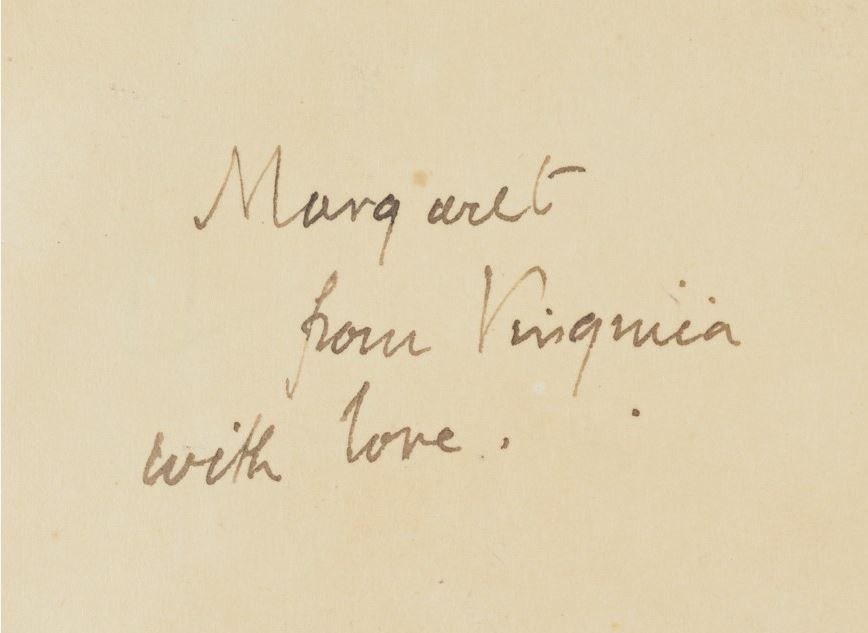 Margaret
from Virginia
with love.